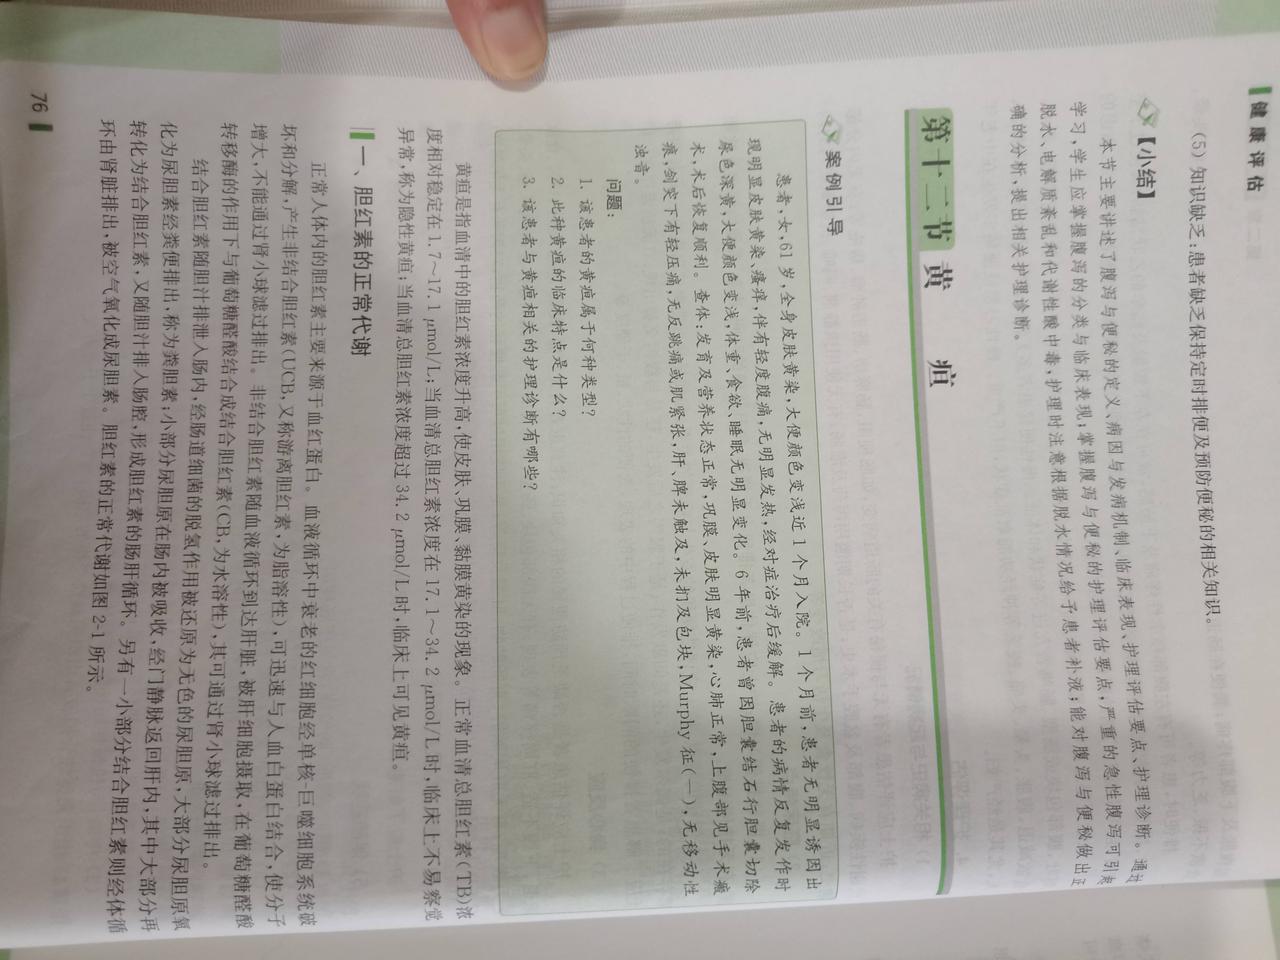 健康评估
(5) 知识缺乏:患者缺乏保持定时排便及预防便秘的相关知识。
【小结】
本节主要讲述了腹泻与便秘的定义、病因与发病机制、临床表现、护理评估要点、护理诊断。通过
学习,学生应掌握腹泻的分类与临床表现;掌握腹泻与便秘的护理评估要点,严重的急性腹泻可引起
脱水、电解质紊乱和代谢性酸中毒,护理时注意根据脱水情况给予患者补液;能对腹泻与便秘做出正
确的分析,提出相关护理诊断。
第十二节 黄 疸
案例引导
患者,女,61 岁,全身皮肤黄染,大便颜色变浅近 1 个月入院。1 个月前,患者无明显诱因出
现明显皮肤黄染、瘙痒,伴有轻度腹痛,无明显发热,经对症治疗后缓解。患者的病情反复发作时
尿色深黄,大便颜色变浅,体重、食欲、睡眠无明显变化。6 年前,患者曾因胆囊结石行胆囊切除
术,术后恢复顺利。查体:发育及营养状态正常,巩膜、皮肤明显黄染,心肺正常,上腹部见手术瘢
痕,剑突下有轻压痛,无反跳痛或肌紧张,肝、脾未触及,未扪及包块,Murphy 征(—),无移动性
浊音。
问题:
1. 该患者的黄疸属于何种类型?
2. 此种黄疸的临床特点是什么?
3. 该患者与黄疸相关的护理诊断有哪些?
黄疸是指血清中的胆红素浓度升高,使皮肤、巩膜、黏膜黄染的现象。正常血清总胆红素(TB)浓
度相对稳定在 1.7～17.1 μmol/L;当血清总胆红素浓度在 17.1～34.2 μmol/L 时,临床上不易察觉
异常,称为隐性黄疸;当血清总胆红素浓度超过 34.2 μmol/L 时,临床上可见黄疸。
一、胆红素的正常代谢
正常人体内的胆红素主要来源于血红蛋白。血液循环中衰老的红细胞经单核-巨噬细胞系统破
坏和分解,产生非结合胆红素(UCB,又称游离胆红素,为脂溶性),可迅速与人血白蛋白结合,使分子
增大,不能通过肾小球滤过排出。非结合胆红素随血液循环到达肝脏,被肝细胞摄取,在葡萄糖醛酸
转移酶的作用下与葡萄糖醛酸结合成结合胆红素(CB,为水溶性),其可通过肾小球滤过排出。
结合胆红素随胆汁排泄入肠内,经肠道细菌的脱氢作用被还原为无色的尿胆原,大部分尿胆原氧
化为尿胆素经粪便排出,称为粪胆素;小部分尿胆原在肠内被吸收,经门静脉返回肝内,其中大部分再
转化为结合胆红素,又随胆汁排入肠腔,形成胆红素的肠肝循环。另有一小部分结合胆红素则经体循
环由肾脏排出,被空气氧化成尿胆素。胆红素的正常代谢如图 2-1 所示。
76